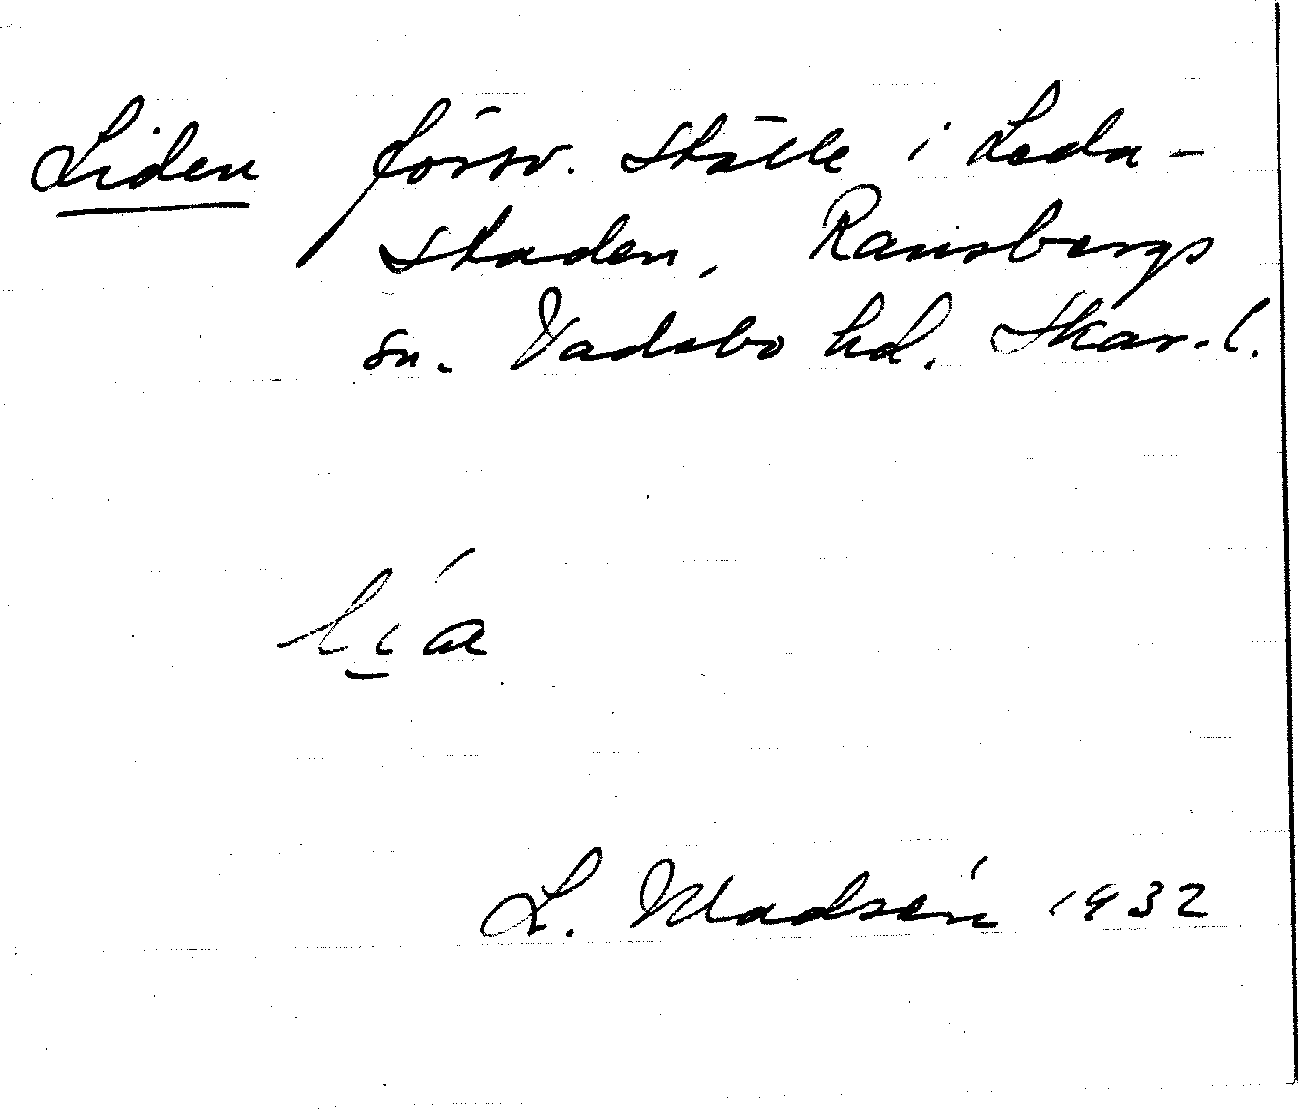 Liden försv. ställe i Leda-
staden, Ransbergs
sn. Vadsbo hd. Skar.l.
lía
L. Madsén 1932